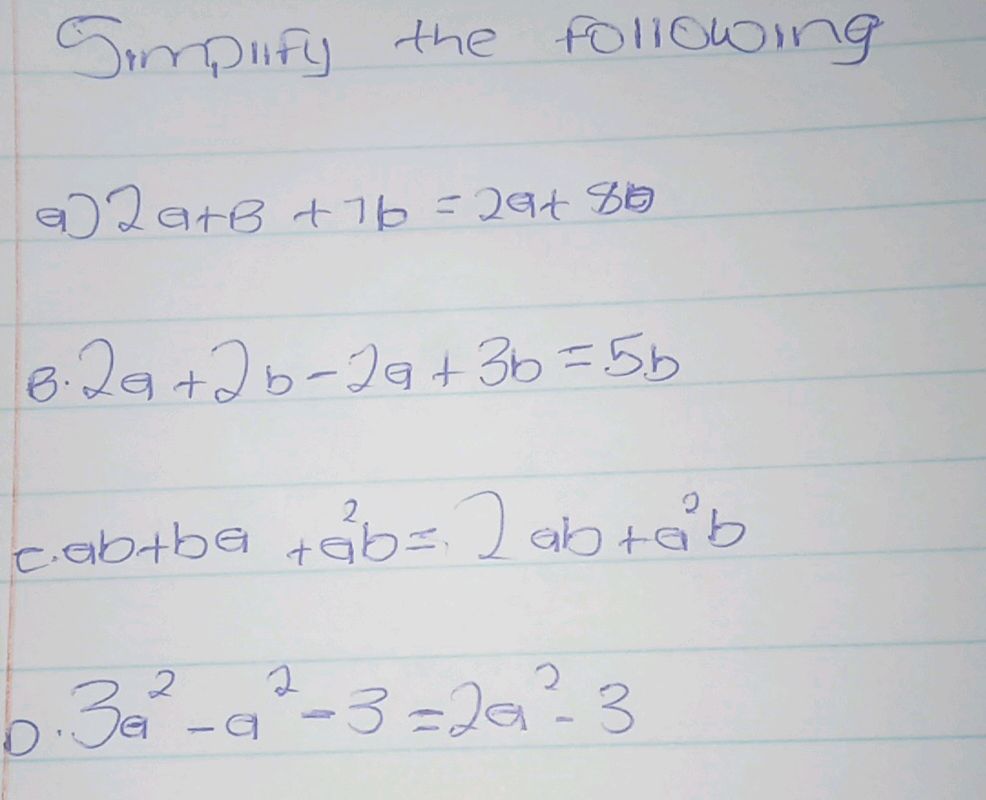 Simplify the following
a) 2a+B +7b = 2a+ 8b
B. 2a + 2b - 2a + 3b = 5b
C. ab+ba +a²b = 2 ab + a²b
D. 3a² - a² - 3 = 2a² - 3